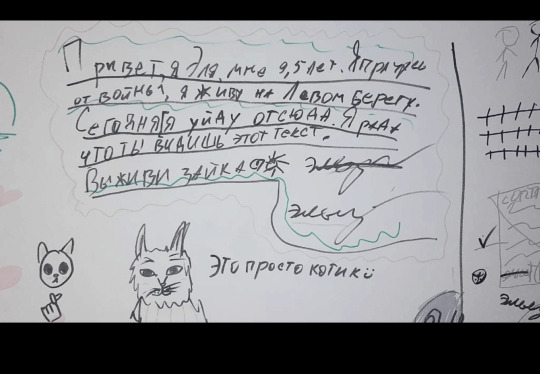 Привет, я Эля, мне 9,5 лет. Я прячусь
от войны, я живу на Левом берегу.
Сегодня я уйду отсюда. Я рада
что ты видишь этот текст.
Выживи зайка
Это просто котики